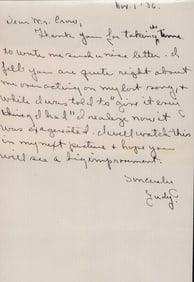 Nov. 1 '36.
Dear Mr. Crow,
Thank you for taking the time
to write me such a nice letter. I
fell you are quite right about
me over acting on my last song, &
while I was told to "give it every
thing I had" I realize now it
was exagerated. I will watch this
in my next picture & hope you
will see a big improvment.
Sincerely
Judy